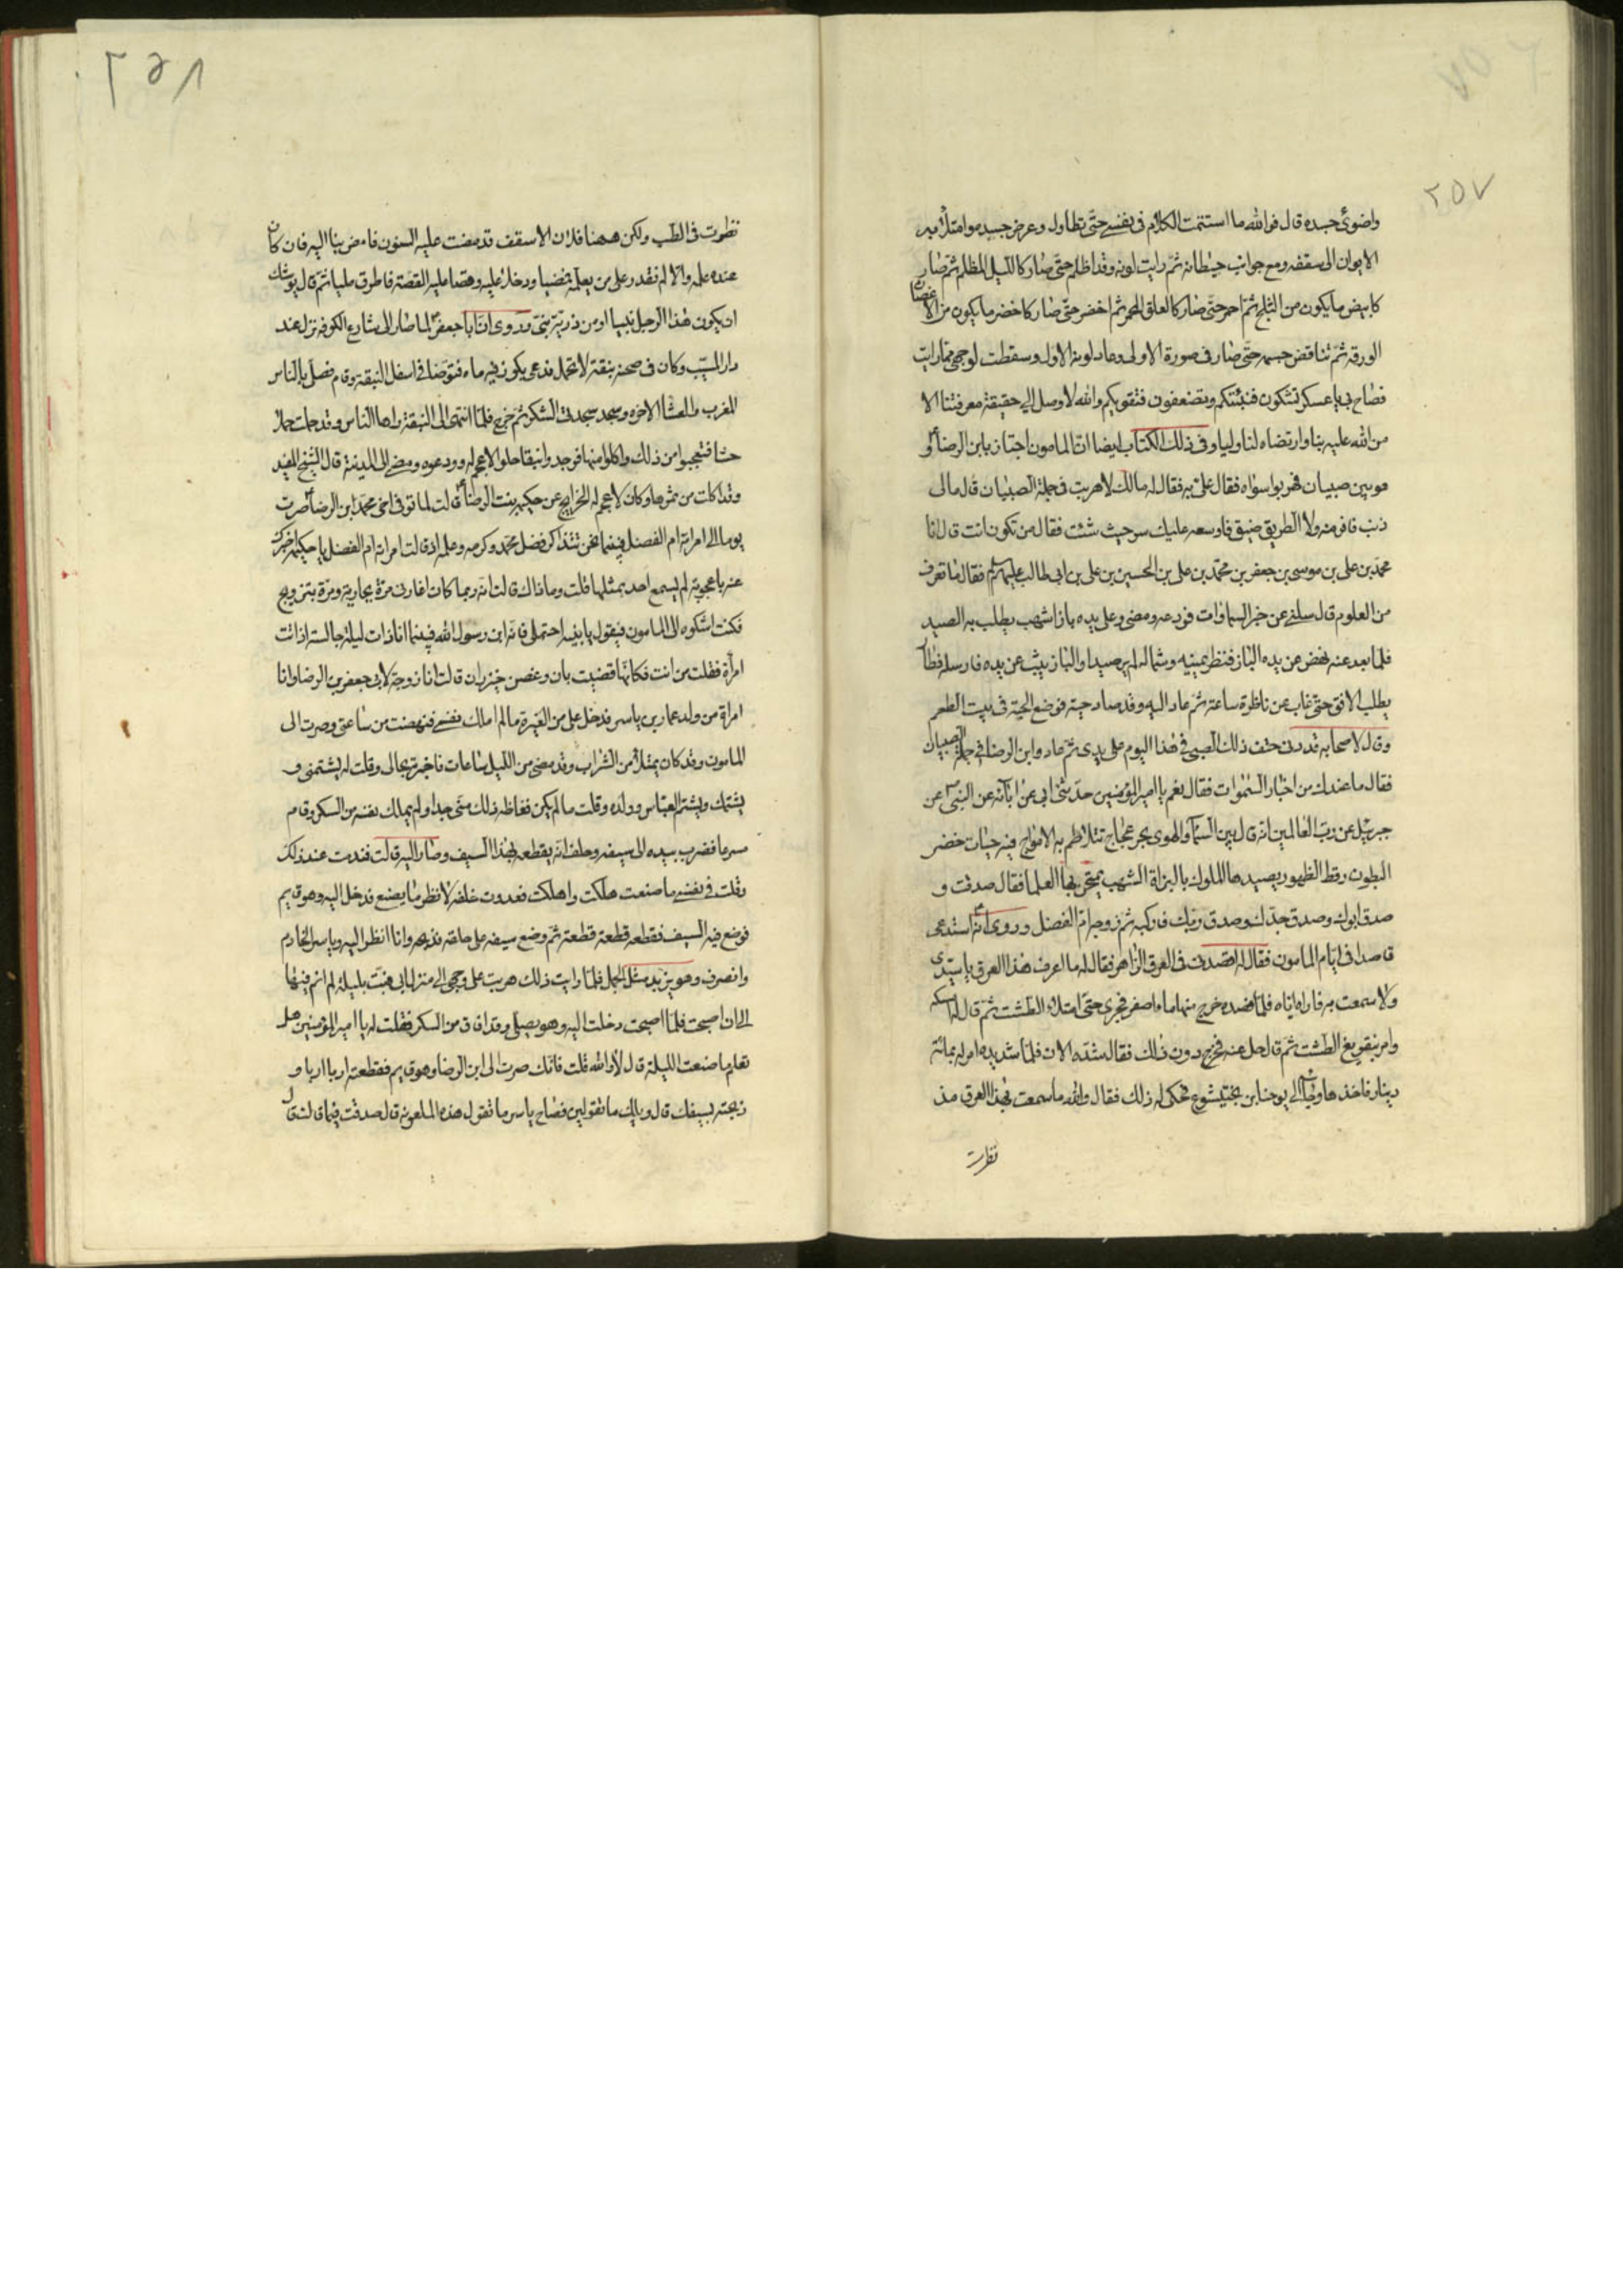 ٢٥٧
واضوئ جسده قال فوالله ما استتمت الكلام فى نفسى حتى تطاول وعرض جسده وامتلأ به
الايوان الى سقفه ومع جوانب حيطانه ثم رايت لونه وقد اظلم حتى صار كالليل المظلم ثم صار
كابيض ما يكون من الثلج ثم احمر حتى صار كالعلق المحمر ثم اخضر حتى صار كاخضر ما يكون من الاغصان
الورقه ثم تناقص جسمه حتى صار فى صورة الاولى وعاد لونه الاول وسقطت لوجهى مما رايت
فصاح بى يا عسكر تشكون فننبئكم وتضعفون فنقويكم والله لا وصل الى حقيقة معرفتنا الا
من الله عليه بنا وارتضاه لنا وليا وفى ذلك الكتاب ايضا ان المامون اجتاز بابن الرضا ع و
هو بين صبيان فهربوا سواه فقال على به فقال له مالك لا هربت فى جملة الصبيان قال مالى
ذنب فافر منه ولا الطريق ضيق فاوسعه عليك سر حيث شئت فقال من تكون انت قال انا
محمد بن على بن موسى بن جعفر بن محمد بن على بن الحسين بن على بن ابى طالب عليهم السلام فقال ما تعرف
من العلوم قال سلنى عن خبر السماوات فودعه ومضى وعلى يده باز اشهب يطلب به الصيد
فلما بعد عنه نهض عن يده الباز فنظر يمينه وشماله لم ير صيدا والباز يثب عن يده فارسله فطار
يطلب الافق حتى غاب عن ناظره ساعة ثم عاد اليه وقد صاد حية فوضع الحية فى بيت الطعم
وقال لاصحابه قد دنى حتف ذلك الصبى فى هذا اليوم على يدى ثم عاد وابن الرضا فى جملة الصبيان
فقال ما عندك من اخبار السموات فقال نعم يا امير المؤمنين حدثنى ابى عن ابآئه عن النبى ص عن
جبرئيل عن رب العالمين انه قال بين السمآ والهوى بحر عجاج تتلاطم به الامواج فيه حيات خضر
البطون رقط الظهور يصيدها الملوك بالبزاة الشهب يمتحن بها العلما فقال صدقت و
صدق ابوك وصدق جدك وصدق ربك فاركبه ثم زوجه ام الفضل وروى انه استدعى
فاصدا فى ايام المامون فقال له افصدنى فى العرق الزاهر فقال له ما اعرف هذا العرق يا سيدى
ولا سمعت به فاراه اياه فلما فصده خرج منها ماء اصفر فجرى حتى امتلاء الطشت ثم قال له امسكه
وامر بتفريغ الطشت ثم قال حل عنه فخرج دون ذلك فقال شده الان فلما شد يده امر له بمائة
دينار فاخذها وجآء الى يوحنا ابن بختيشوع فحكى له ذلك فقال والله ما سمعت بهذا العرق مذ
نظرت
٢٥٨
نظرت فى الطب ولكن ههنا فلان الاسقف قد مضت عليه السنون فامض بنا اليه فان كان
عنده علمه والا لم نقدر على من يعلمه فمضيا ودخلا عليه وقصا عليه القصة فاطرق مليا ثم قال يوشك
ان يكون هذا الرجل نبيا او من ذرية نبى وروى ان ابا جعفر ع لما صار الى شارع الكوفه نزل عند
دار المسيب وكان فى صحنه نبقة لا تحمل فدعى بكوز فيه ماء فتوضا فى اسفل النبقة وقام فصلى بالناس
المغرب والعشا الاخره وسجد سجدتى الشكر ثم خرج فلما انتهى الى النبقة راها الناس وقد حملت حملا
حسنا فتعجبوا من ذلك واكلوا منها فوجدوا نبقا حلوا لا عجم له وودعوه ومضى الى المدينة قال الشيخ المفيد
وقد اكلت من ثمرها وكان لا عجم له الخرايج عن حكيمه بنت الرضا ع قالت لما توفى اخى محمد ابن الرضا ع صرت
يوما الى امراته ام الفضل فبينما نحن نتذاكر فضل محمد وكرمه وعلمه اذ قالت امراته ام الفضل يا حكيمه اخبرك
عنه باعجوبة لم يسمع احد بمثلها قلت وما ذاك قالت انه ربما كان اغارنى مرة بجارية ومرة بتزويج
فكنت اشكوه الى المامون فيقول يا بنيه احتملى فانه ابن رسول الله فبينما انا ذات ليلة جالسة اذ اتت
امرأة فقلت من انت فكانها قضيب بان وغصن خيزران قالت انا زوجة لابى جعفر بن الرضا وانا
امراة من ولد عمار بن ياسر فدخل على من الغيرة ما لم املك نفسى فنهضت من ساعتى وصرت الى
المامون وقد كان يمتلأ من الشراب وقد مضى من الليل ساعات فاخبرته بحالى وقلت له يشتمنى و
يشتمك ويشتم العباس وولده وقلت ما لم يكن فغاظه ذلك منى جدا ولم يملك نفسه من السكر وقام
مسرعا فضرب بيده الى سيفه وحلف انه يقطعه بهذا السيف وصار اليه قالت فندمت عند ذلك
وقلت فى نفسى ما صنعت هلكت واهلكت فعدوت خلفه لانظر ما يصنع فدخل اليه وهو نايم
فوضع فيه السيف فقطعه قطعة قطعة ثم وضع سيفه على حلقه فذبحه وانا انظر اليه وياسر الخادم
وانصرف وهو يزبد مثل الجمل فلما رايت ذلك هربت على وجهى الى منزل ابى فبت بليلة لم انم فيها
الى ان اصبحت فلما اصبحت دخلت اليه وهو يصلى وقد افاق من السكر فقلت له يا امير المؤمنين هل
تعلم ما صنعت الليلة قال لا والله قلت فانك صرت الى ابن الرضا وهو نايم فقطعته اربا اربا و
ذبحته بسيفك قال ويلك ما تقولين فصاح ياسر ما تقول هذه الملعونة قال صدقت فيما قالت قال